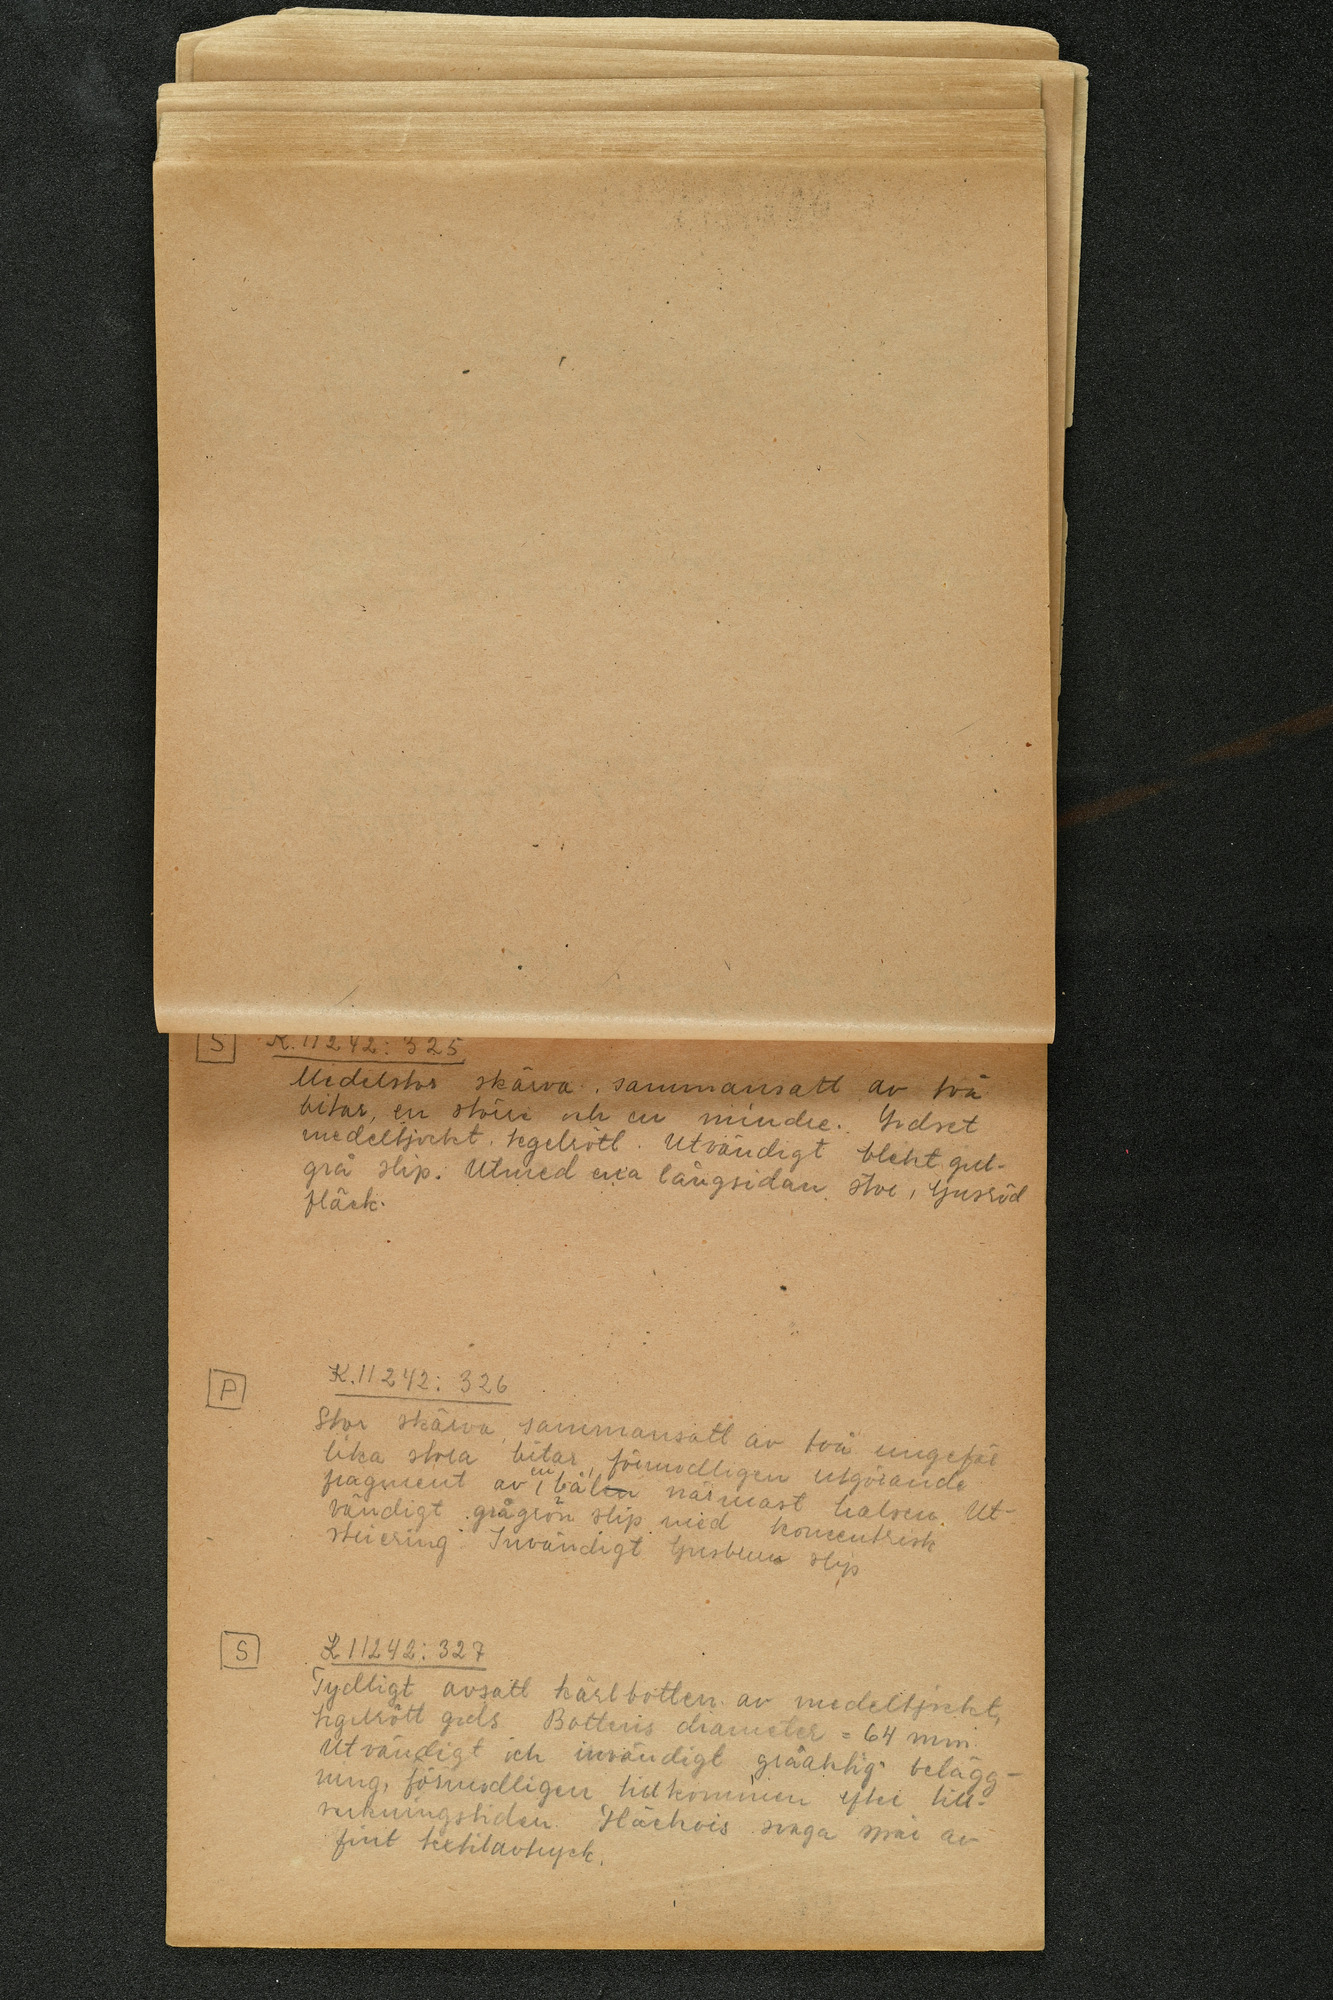 S K.11242:325
Medelstor skärva, sammansatt av två
bitar, en större och en mindre. Godset
medeltjockt, tegelrött. Utvändigt blekt gul-
grå slip. Utmed ena långsidan stor, ljusröd
fläck.
P K.11242:326
Stor skärva, sammansatt av två ungefär
lika stora bitar, förmodligen utgörande
fragment av en bålen närmast halsen. Ut-
vändigt grågrön slip med koncentrisk
striering. Invändigt ljusbrun slip
S K 11242:327
Tydligt avsatt kärlbotten av medeltjockt,
tegelrött gods. Bottens diameter = 64 mm.
Utvändigt och invändigt gråaktig belägg-
ning, förmodligen tillkommen efter till-
verkningstiden. Fläckvis svaga spår av
fint textilavtryck.